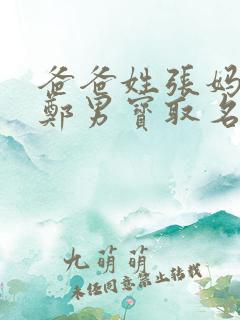 爸爸姓張媽
鄭男寶取名
九萌萌
未經同意禁止轉載